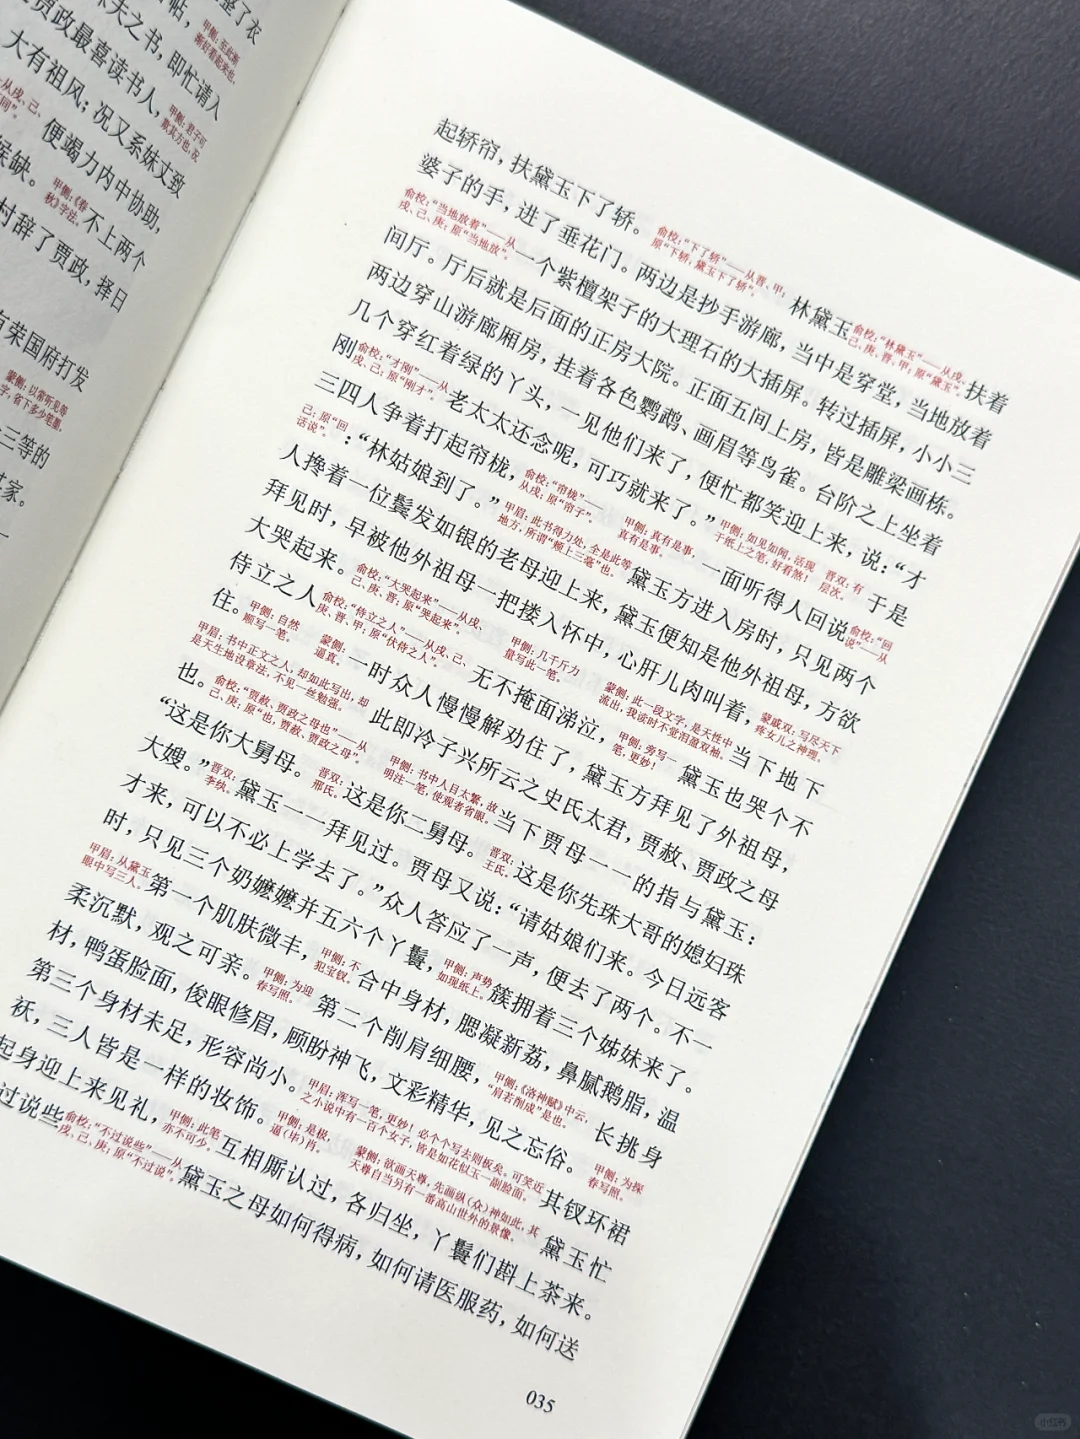 整了衣
帖，甲侧：至此渐
渐好看起来也。
夫之书，即忙请入
贾政最喜读书人，甲侧：君子可
欺其方也，况
大有祖风；况又系妹丈致
从戌、己、
便竭力内中协助，
候缺。甲侧：《春
秋》字法。不上两个
村辞了贾政，择日
有荣国府打发
蒙侧：以常听见等
字，省下多少笔墨。
三等的
其家。
起轿帘，扶黛玉下了轿。俞校：“下了轿”——从晋、甲；
原“下轿，黛玉下了轿”。林黛玉俞校：“林黛玉”——从戌、
己、庚、晋、甲；原“黛玉”。扶着
婆子的手，进了垂花门。两边是抄手游廊，当中是穿堂，当地放着
俞校：“当地放着”——从
戌、己、庚；原“当地放”。一个紫檀架子的大理石的大插屏。转过插屏，小小三
间厅。厅后就是后面的正房大院。正面五间上房，皆是雕梁画栋。
两边穿山游廊厢房，挂着各色鹦鹉、画眉等鸟雀。台阶之上坐着
几个穿红着绿的丫头，一见他们来了，便忙都笑迎上来，说：“才
刚俞校：“才刚”——从
戌、己；原“刚才”。老太太还念呢，可巧就来了。”甲侧：如见如闻，活现
于纸上之笔，好看煞！晋双：有
层次。于是
三四人争着打起帘栊，俞校：“帘栊”——
从戌；原“帘子”。甲侧：真有是事，
真有是事。一面听得人回说俞校：“回
说”——从
己；原“回
话说”。：“林姑娘到了。”甲眉：此书得力处，全是此等
地方，所谓“颊上三毫”也。黛玉方进入房时，只见两个
人搀着一位鬓发如银的老母迎上来，黛玉便知是他外祖母，方欲
拜见时，早被他外祖母一把搂入怀中，心肝儿肉叫着，蒙戚双：写尽天下
疼女儿之神理。
大哭起来。俞校：“大哭起来”——从戌、
己、庚、晋；原“哭起来”。甲侧：几千斤力
量写此一笔。蒙侧：此一段文字，是天性中
流出，我读时不觉泪盈双袖。当下地下
侍立之人俞校：“侍立之人”——从戌、己、
庚、晋、甲；原“伏侍之人”。无不掩面涕泣，甲侧：旁写一
笔，更妙！黛玉也哭个不
住。甲侧：自然
顺写一笔。蒙侧：
逼真。一时众人慢慢解劝住了，黛玉方拜见了外祖母，
甲眉：书中正文之人，却如此写出，却
是天生地设章法，不见一丝勉强。此即冷子兴所云之史氏太君，贾赦、贾政之母
也。俞校：“贾赦、贾政之母也”——从
己、庚；原“也，贾赦、贾政之母”。甲侧：书中人目太繁，故
明注一笔，使观者省眼。当下贾母一一的指与黛玉：
“这是你大舅母。晋双：
邢氏。这是你二舅母。晋双：
王氏。这是你先珠大哥的媳妇珠
大嫂。”晋双：
李纨。黛玉一一拜见过。贾母又说：“请姑娘们来。今日远客
才来，可以不必上学去了。”众人答应了一声，便去了两个。不一
时，只见三个奶嬷嬷并五六个丫鬟，甲侧：声势
如现纸上。簇拥着三个姊妹来了。
甲眉：从黛玉
眼中写三人。第一个肌肤微丰，甲侧：不
犯宝钗。合中身材，腮凝新荔，鼻腻鹅脂，温
柔沉默，观之可亲。甲侧：为迎
春写照。第二个削肩细腰，甲侧：《洛神赋》中云，
“肩若削成”是也。长挑身
材，鸭蛋脸面，俊眼修眉，顾盼神飞，文彩精华，见之忘俗。甲侧：为探
春写照。
第三个身材未足，形容尚小。甲眉：浑写一笔，更妙！必个个写去则板矣。可笑近
之小说中有一百个女子，皆是如花似玉一副脸面。其钗环裙
袄，三人皆是一样的妆饰。甲侧：是极，
逼（毕）肖。蒙侧：欲画天尊，先画纵（众）神如此，其
天尊自当另有一番高山世外的景像。黛玉忙
起身迎上来见礼，甲侧：此笔
亦不可少。互相厮认过，各归坐，丫鬟们斟上茶来。
过说些俞校：“不过说些”——从
戌、己、庚；原“不过说”。黛玉之母如何得病，如何请医服药，如何送
035
小红书